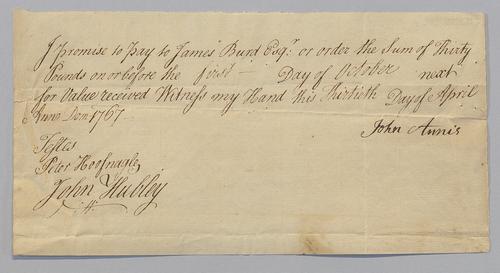 I promise to Pay to James Burd Esqr. or order the Sum of Thirty
Pounds on or before the first — Day of October next
for Value received Witness my Hand this Thirtieth Day of April
Anno Dom 1767
John Annis
Testes
Peter Hoofnagle
John Hubley